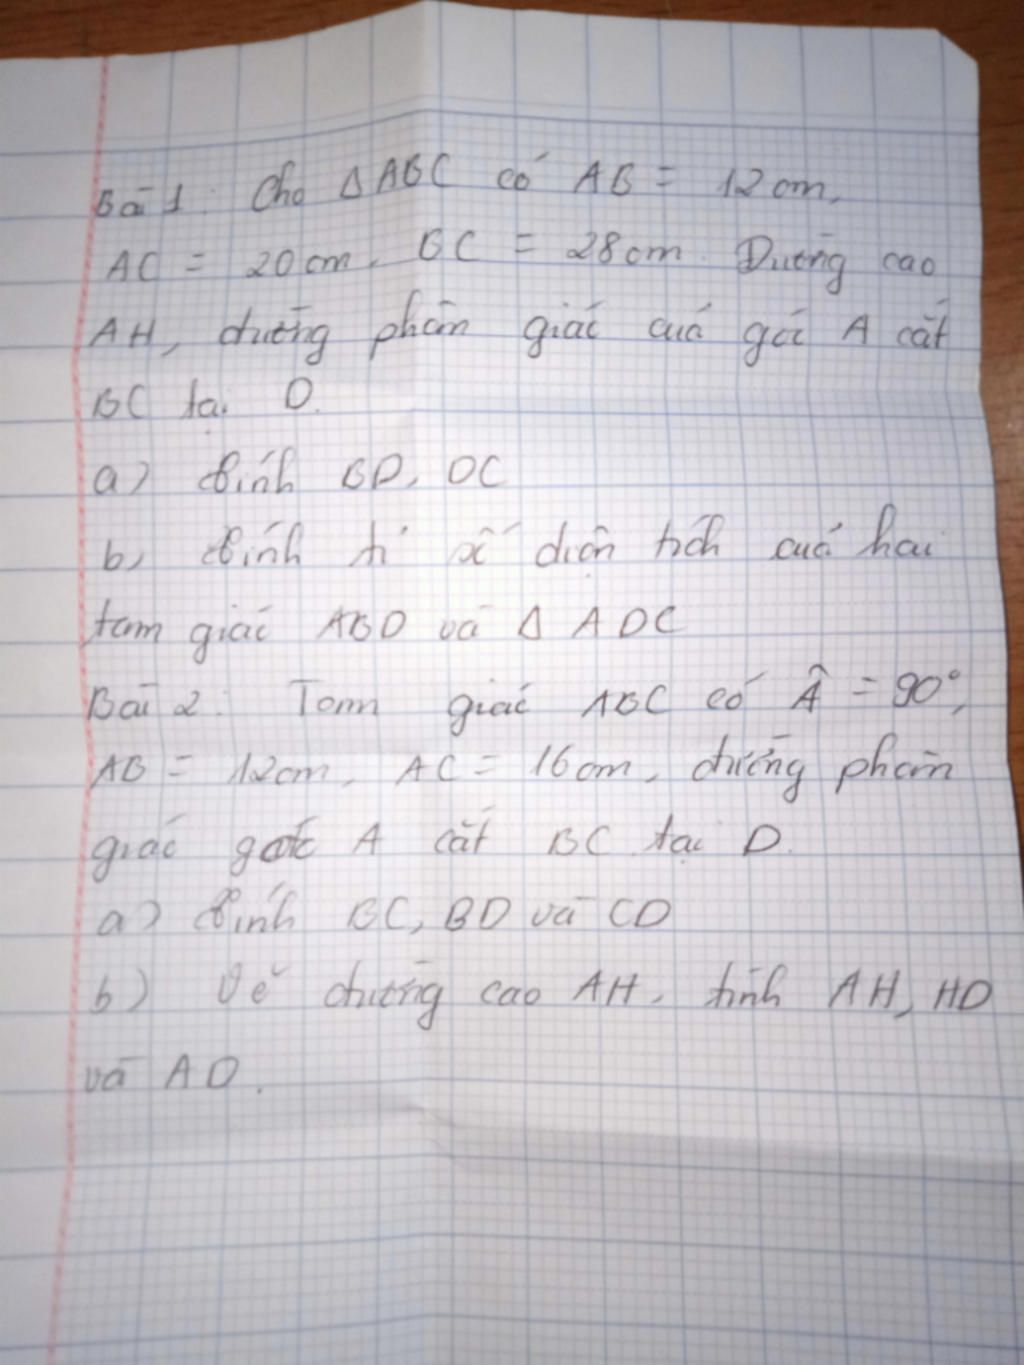 Bài 1: Cho ΔABC có AB = 12cm,
AC = 20cm, BC = 28cm. Đường cao
AH, đường phân giác của góc A cắt
BC tại D.
a) Tính BD, DC
b) Tính tỉ số diện tích của hai
tam giác ABD và Δ ADC
Bài 2: Tam giác ABC có Â = 90°,
AB = 12cm, AC = 16cm, đường phân
giác góc A cắt BC tại D.
a) Tính BC, BD và CD
b) Vẽ đường cao AH, tính AH, HD
và AD.